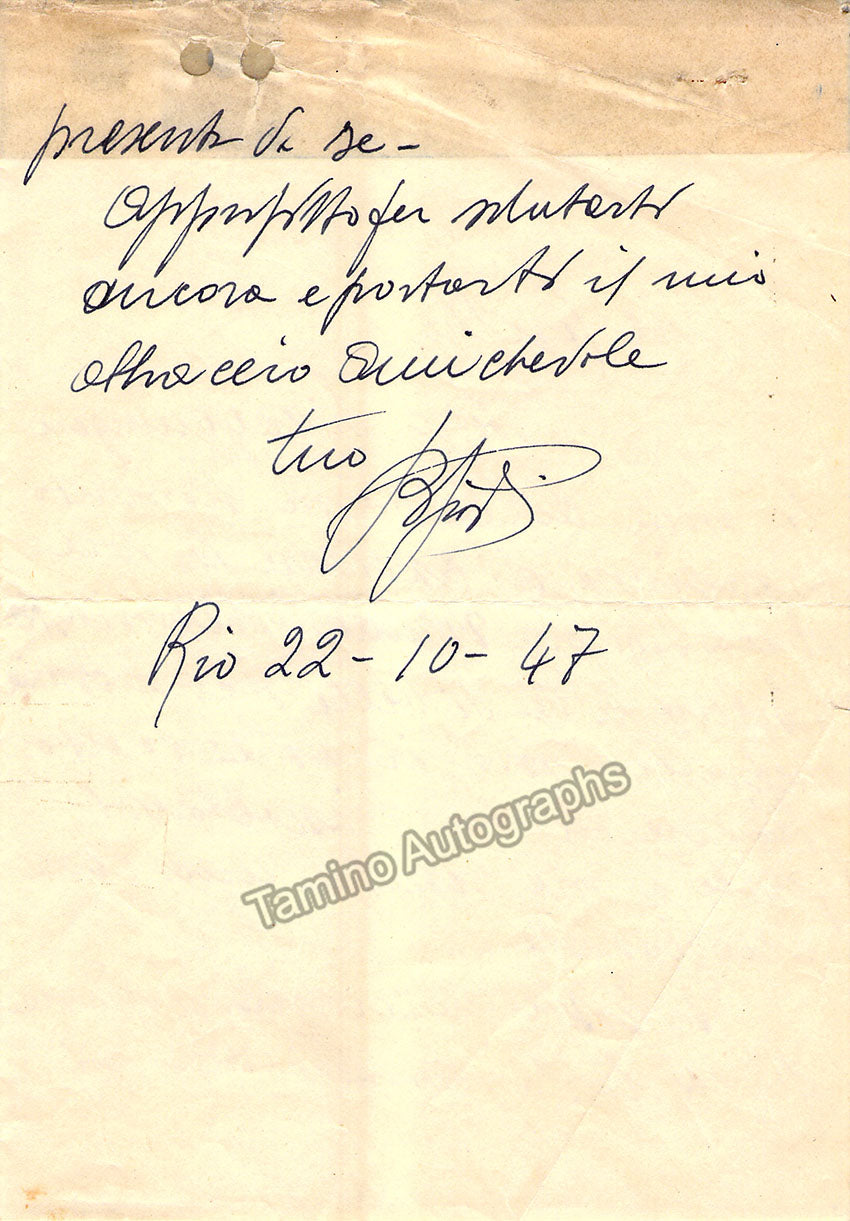 presenta da se -
Approfitto per salutarti
ancora e portarti il mio
abbraccio amichevole
tuo
Rio 22 - 10 - 47
Tamino Autographs